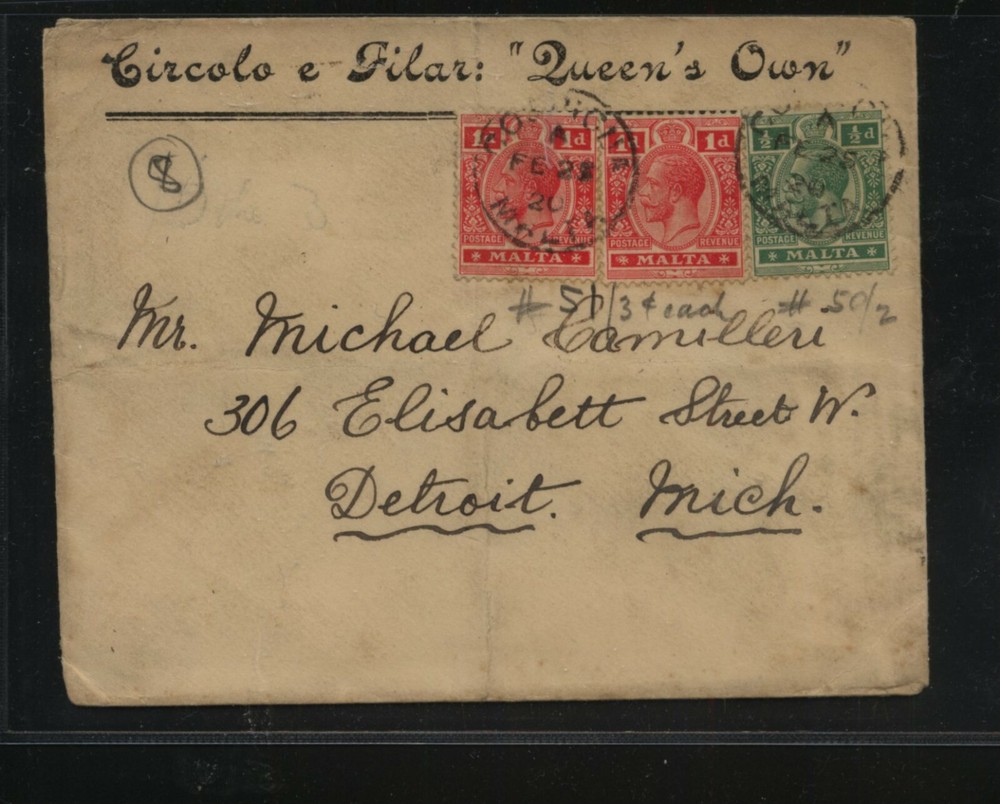 Circolo e Filar: "Queen's Own"
8
1d 1d
POSTAGE REVENUE
MALTA
1d 1d
POSTAGE REVENUE
MALTA
½d ½d
POSTAGE REVENUE
MALTA
A
FE 25
20
A
FE 25
20
# 51/3¢ each # 50/2
Mr. Michael Camilleri
306 Elisabett Street W.
Detroit. Mich.